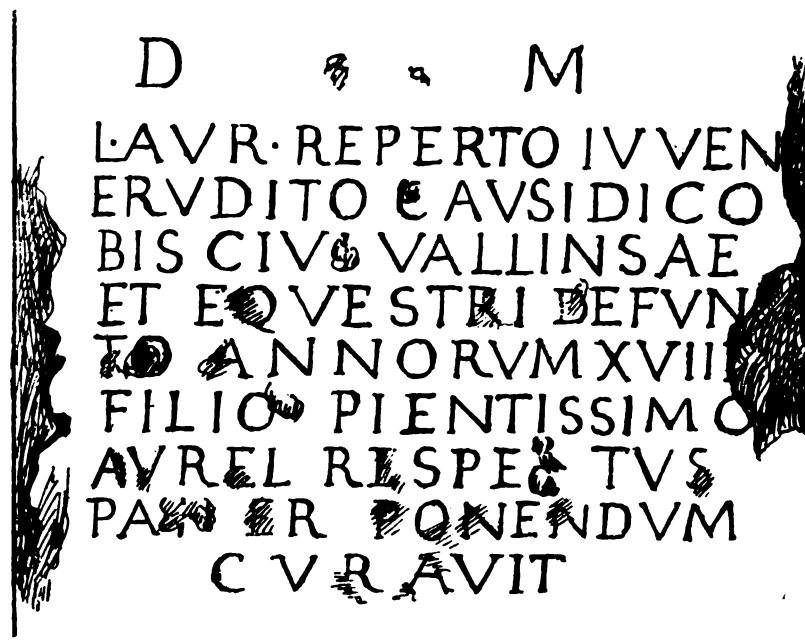 D M
L·AVR·REPERTO IVVEN
ERVDITO CAVSIDICO
BIS CIVS VALLINSAE
ET EQVESTRI DEFVN
TO ANNORVM XVIII
FILIO PIENTISSIMO
AVREL RESPECTVS
PATER PONENDVM
CVRAVIT